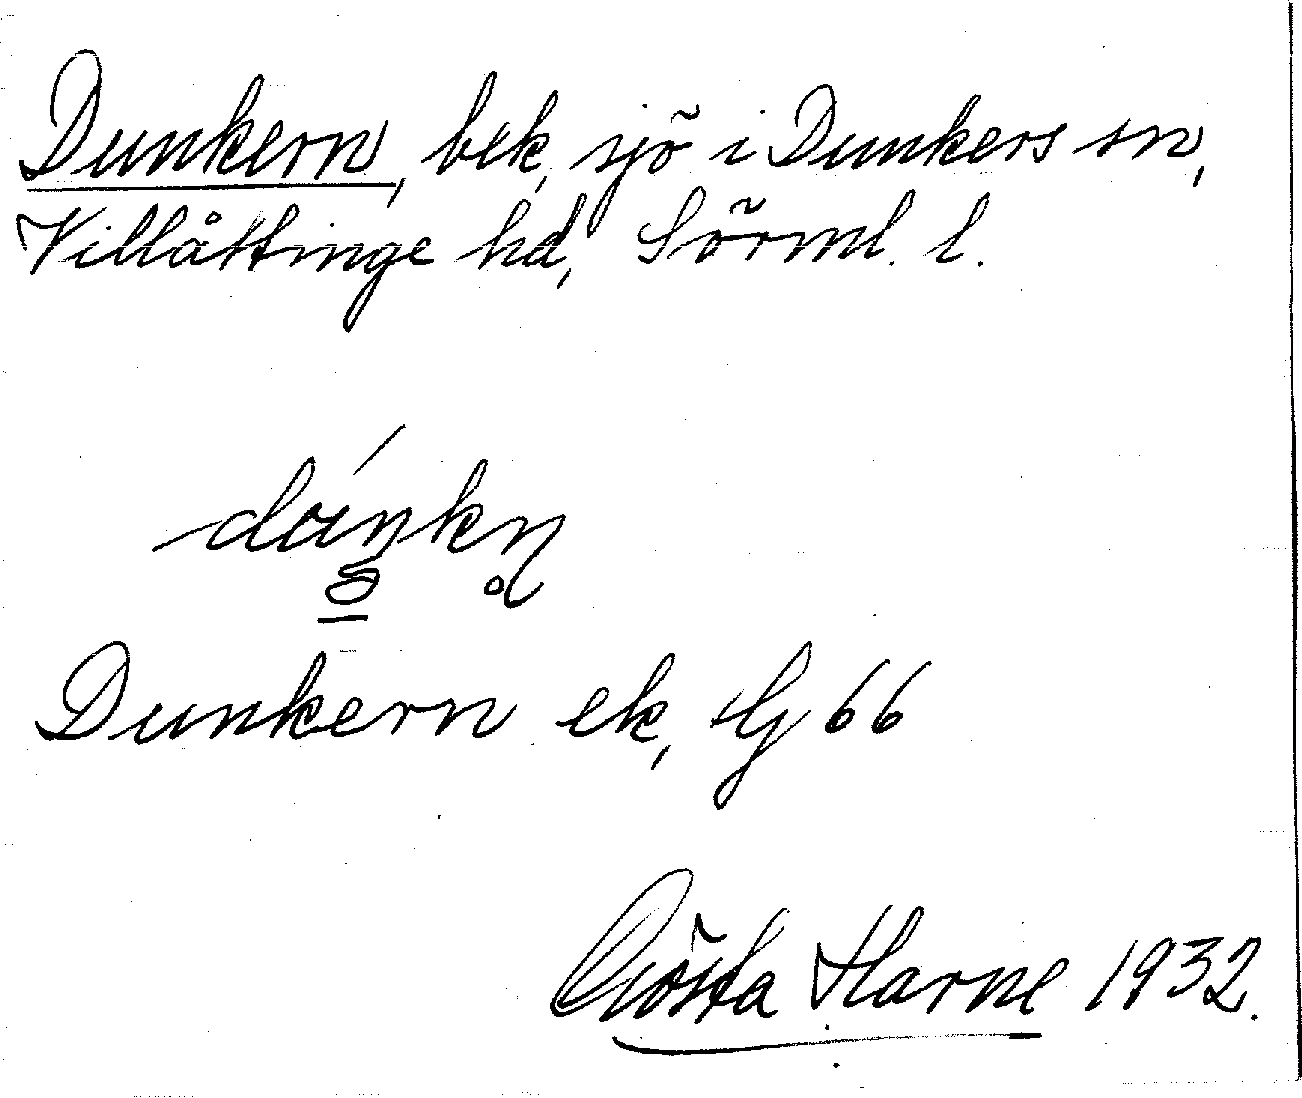 Dunkern, bek, sjö i Dunkers sn,
Villåttinge hd, Sörml. l.
Dunkern ek, G 66
Gösta Harne 1932.